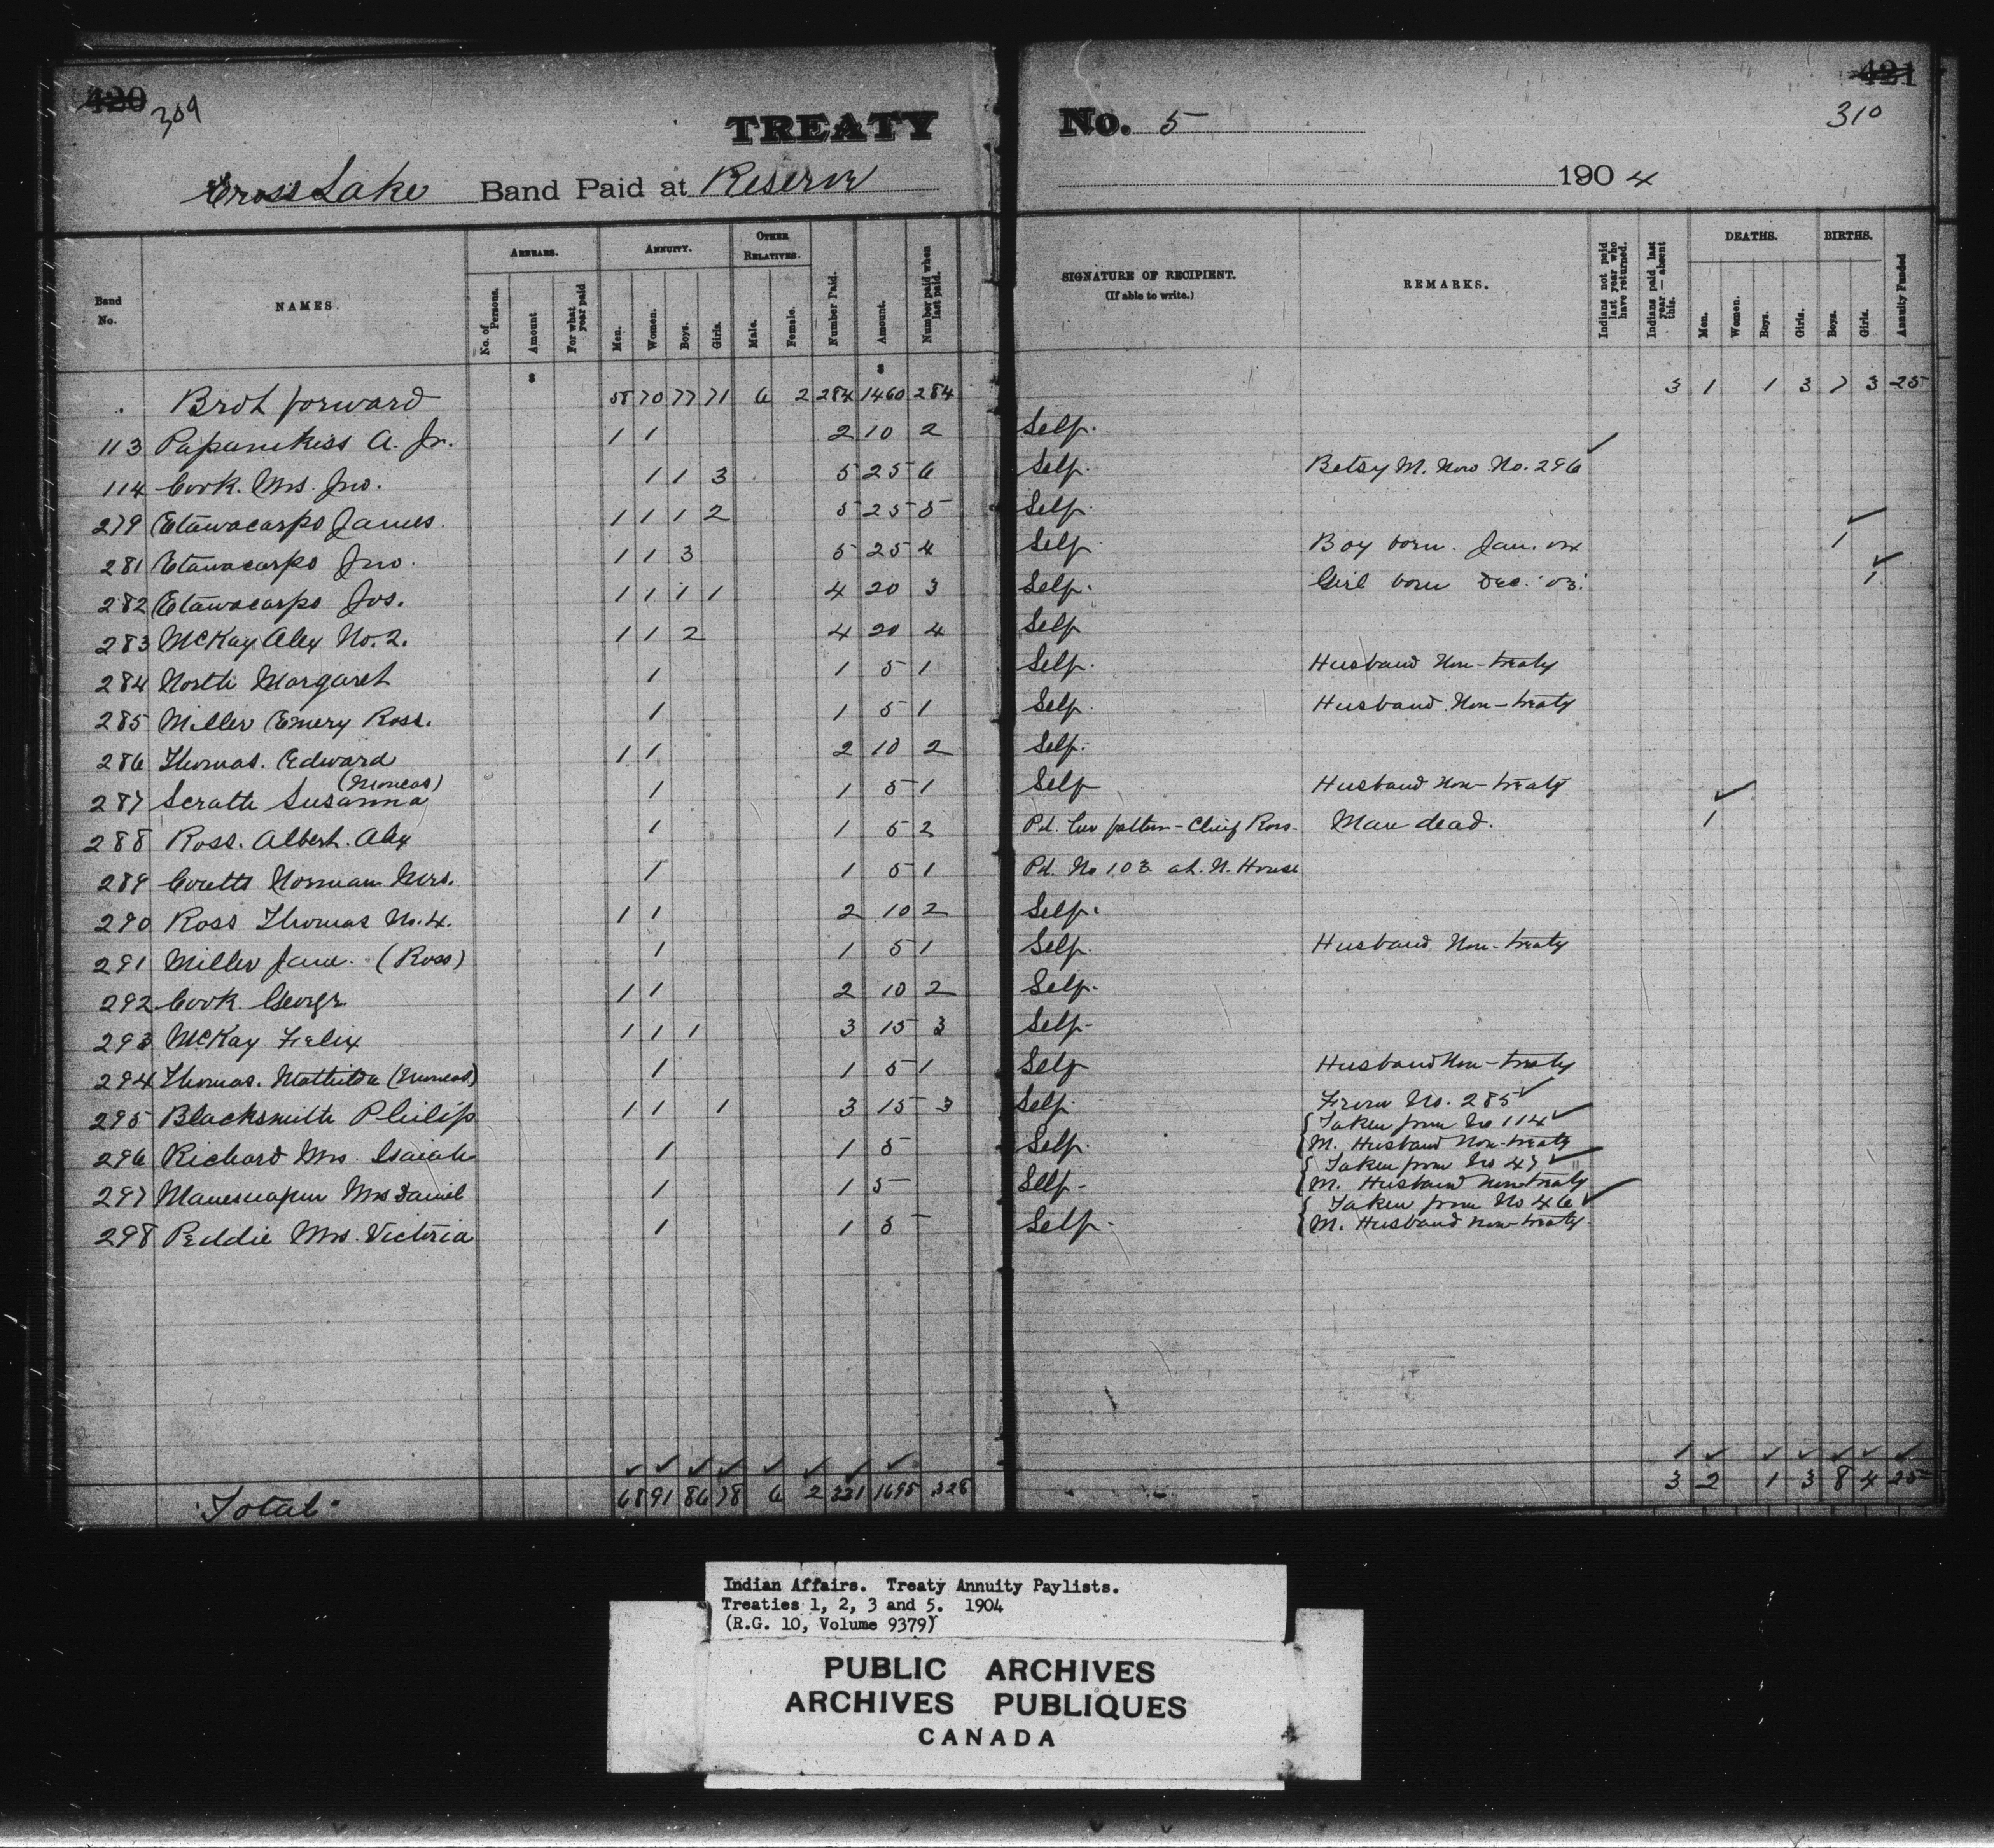 420 309
TREATY No. 5
421
310
Cross Lake Band Paid at Reserve 1904
Band No. NAMES. ARREARS. No. of Persons. Amount For what year paid ANNUITY. Men. Women. Boys. Girls. OTHER RELATIVES. Male. Female. Number Paid. Amount. Number paid when last paid. SIGNATURE OF RECIPIENT. (If able to write.) REMARKS. Indians not paid last year who have returned. Indians paid last year — absent this. DEATHS. Men. Women. Boys. Girls. BIRTHS. Boys. Girls. Annuity Funded
$ $
Brot forward 58 70 77 71 6 2 284 1460 284 3 1 1 3 7 3 25
113 A. Jr. 1 1 2 10 2 Self.
114 Cook. Mrs. Jno. 1 1 3 5 25 6 Self. Betsy M. Now No. 296
279 Etawacarpo James. 1 1 1 2 5 25 5 Self.
281 Etawacarpo Jno. 1 1 3 5 25 4 Self Boy born. Jan. 04 1
282 Etawacarpo Jos. 1 1 1 1 4 20 3 Self. Girl born Dec. '03. 1
283 McKay Alex No. 2. 1 1 2 4 20 4 Self
284 North Margaret 1 1 5 1 Self. Husband Non-treaty
285 Miller Emery Ross. 1 1 5 1 Self. Husband Non-treaty
286 Thomas. Edward 1 1 2 10 2 Self.
(Moneas)
287 Scratch Susanna 1 1 5 1 Self Husband Non-treaty
288 Ross. Albert. Alex 1 1 5 2 Pd. her father - Chief Ross. Man dead. 1
289 Coutts Norman Mrs. 1 1 5 1 Pd. No 103 at N. House
290 Ross Thomas No. 4. 1 1 2 10 2 Self.
291 Miller Jane. (Ross) 1 1 5 1 Self. Husband Non-treaty
292 Cook George 1 1 2 10 2 Self.
293 McKay Felix 1 1 1 3 15 3 Self-
294 Thomas. Mathilda (Moneas) 1 1 5 1 Self Husband Non-treaty
295 Blacksmith Philip 1 1 1 3 15 3 Self. From No. 285
296 Richard Mrs. Isaiah 1 1 5 Self. Taken from No 114
M. Husband Non-treaty
297 Mrs Daniel 1 1 5 Self- Taken from No 47
M. Husband Non-treaty
298 Peddie Mrs. Victoria 1 1 5 Self. Taken from No 46
M. Husband non-treaty.
Total 68 91 86 78 6 2 331 1695 328 3 2 1 3 8 4 25
Indian Affairs. Treaty Annuity Paylists.
Treaties 1, 2, 3 and 5. 1904
(R.G. 10, Volume 9379)
PUBLIC ARCHIVES
ARCHIVES PUBLIQUES
CANADA